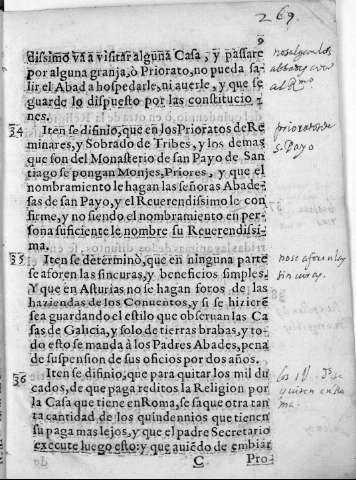 269.
9
dissimo va a visitar alguna Casa, y passare
por alguna granja, ò Priorato, no pueda sa-
lir el Abad a hospedarle, ni auerle, y que se
guarde lo dispuesto por las constitucio-
nes.
34 Iten se difinio, que en los Prioratos de Re
minares, y Sobrado de Tribes, y los demas
que son del Monasterio de san Payo de San
tiago se pongan Monjes, Priores, y que el
nombramiento le hagan las señoras Abade-
sas de san Payo, y el Reuerendissimo le con
firme, y no siendo el nombramiento en per-
sona suficiente le nombre su Reuerendissi-
ma.
35 Iten se determinò, que en ninguna parte
se aforen las sincuras, y beneficios simples.
Y que en Asturias no se hagan foros de las
haziendas de los Conuentos, y si se hiziere
sea guardando el estilo que obseruan las Ca
sas de Galicia, y solo de tierras brabas, y to-
do esto se manda à los Padres Abades, pena
de suspension de sus oficios por dos años.
36 Iten se difinio, que para quitar los mil du
cados, de que paga reditos la Religion por
la Casa que tiene en Roma, se saque otra tan
ta cantidad de los quindennios que tienen
su paga mas lejos, y que el padre Secretario
execute luego esto: y que auiẽdo de embiar
C Pro-
no salgan los
abbades
al R.mo
prioratos de
S. Payo
no se aforen las
sincuras.